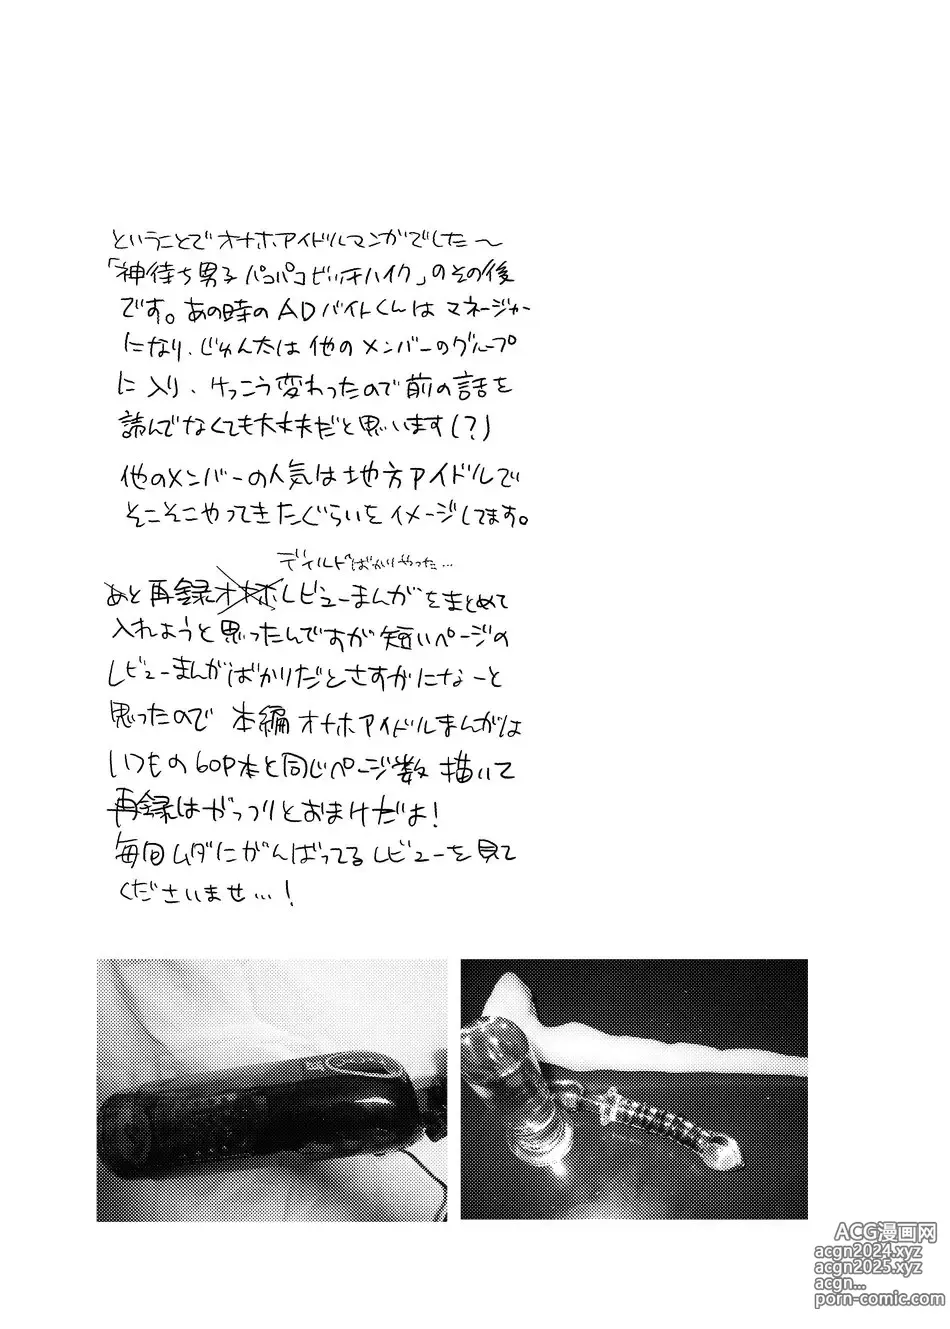 ということでオナホアイドルマンガでした〜
「神待ち男子パコパコビッチハイク」のその後
です。あの時のADバイトくんはマネージャー
になり、じゅん太は他のメンバーのグループ
に入り、けっこう変わったので前の話を
読んでなくても大丈夫だと思います(?)
他のメンバーの人気は地方アイドルで
そこそこやってきたぐらいをイメージしてます。
ディルドばかりやった…
あと再録オナホレビューまんがをまとめて
入れようと思ったんですが短いページの
レビューまんがばかりだとさすがになーと
思ったので本編オナホアイドルまんがは
いつもの60P本と同じページ数描いて
再録はがっつりとおまけだよ!
毎回ムダにがんばってるレビューを見て
くださいませ…!
ACG漫画网
acgn2024.xyz
acgn2025.xyz
acgn...
porn-comic.com